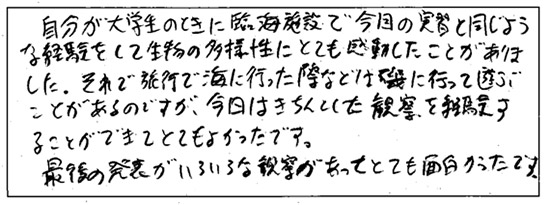 自分が大学生のときに臨海施設で今回の実習と同じよう
な経験をして生物の多様性にとても感動したことがありま
した。それで旅行で海に行った際などは磯に行って遊ぶ
ことがあるのですが、今回はきちんとした観察を経験す
ることができてとてもよかったです。
最後の発表がいろいろな観察があってとても面白かったです